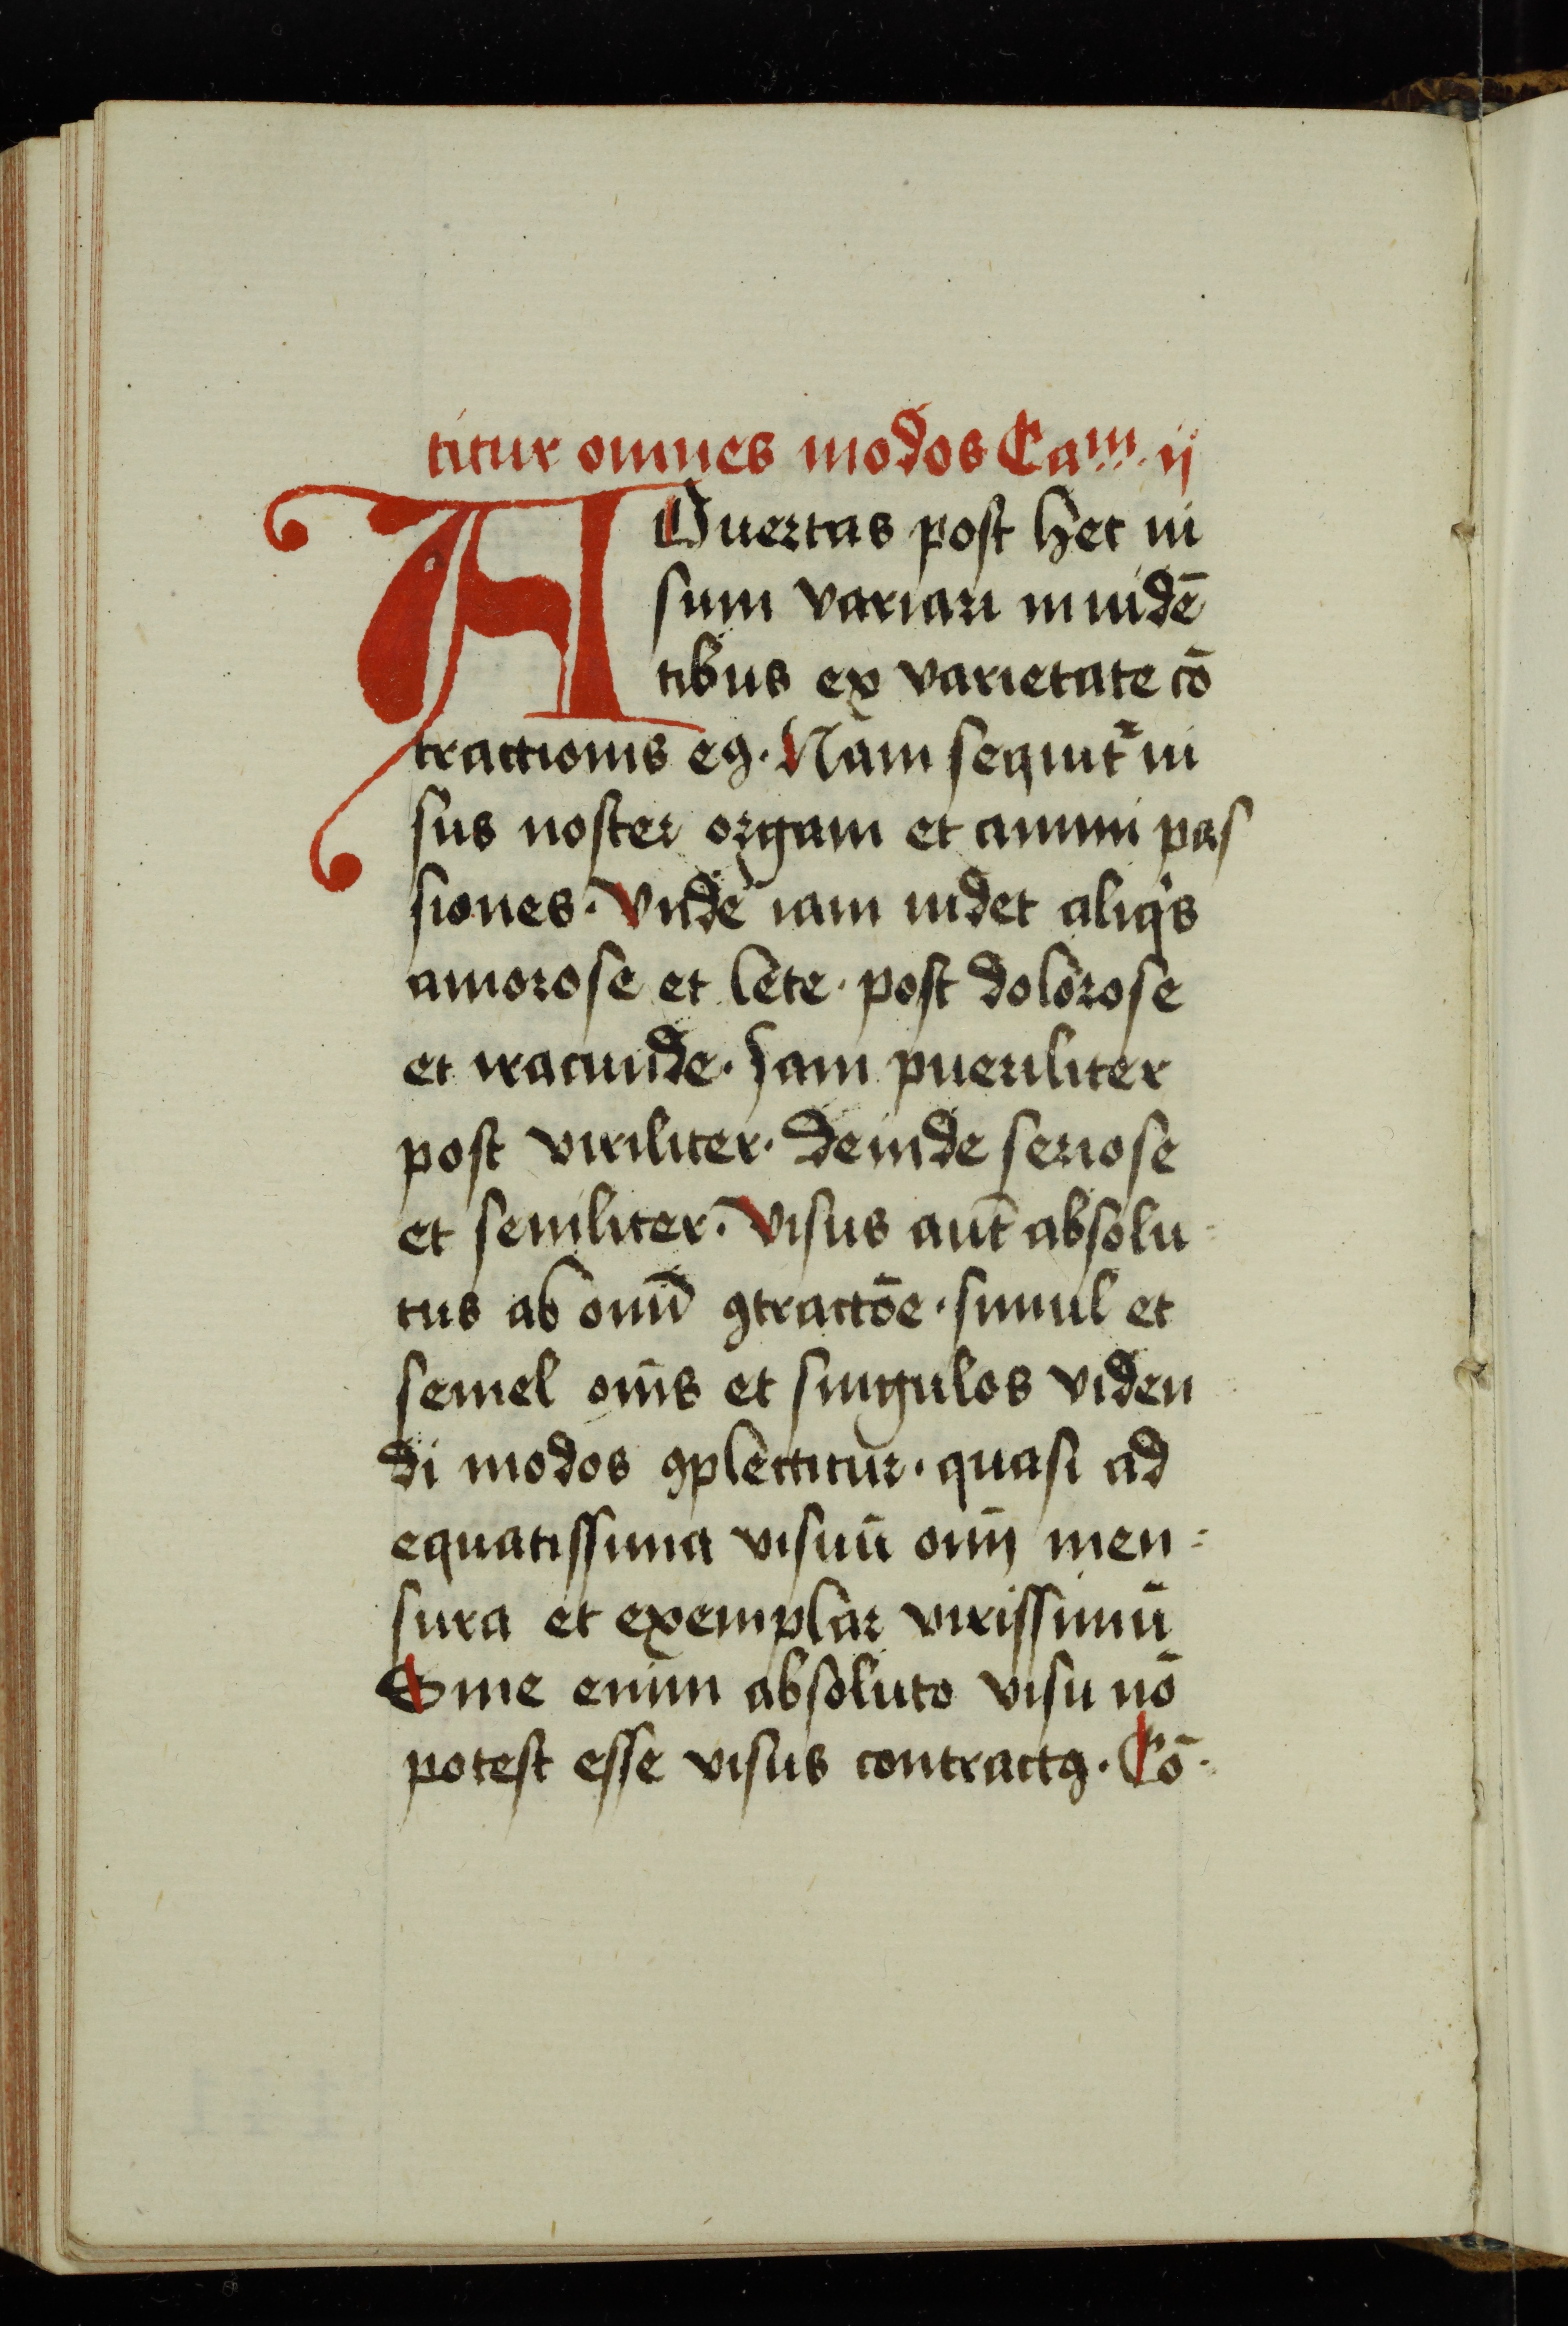 titur omnes modos Caᵐ ij
ADuertas post hec ui
sum variari in uidē
tibus ex varietate cō
tractionis eꝯ. Nam sequit᷑ ui
sus noster organi et animi pas
siones. Vnde iam uidet aliqⁱs
amorose et lete. post dolorose
et iracunde. Iam pueriliter
post viriliter. Deinde seriose
et seniliter. Visus aut̄ absolu
tus ab omī ꝯtractōe. simul et
semel om̄s et singulos viden
di modos ꝯplectitur. quasi ad
equatissima visuū om̄ men-
sura et exemplar virissimū
Sine enim absoluto visu nō
potest esse visus contractꝯ. Cō-